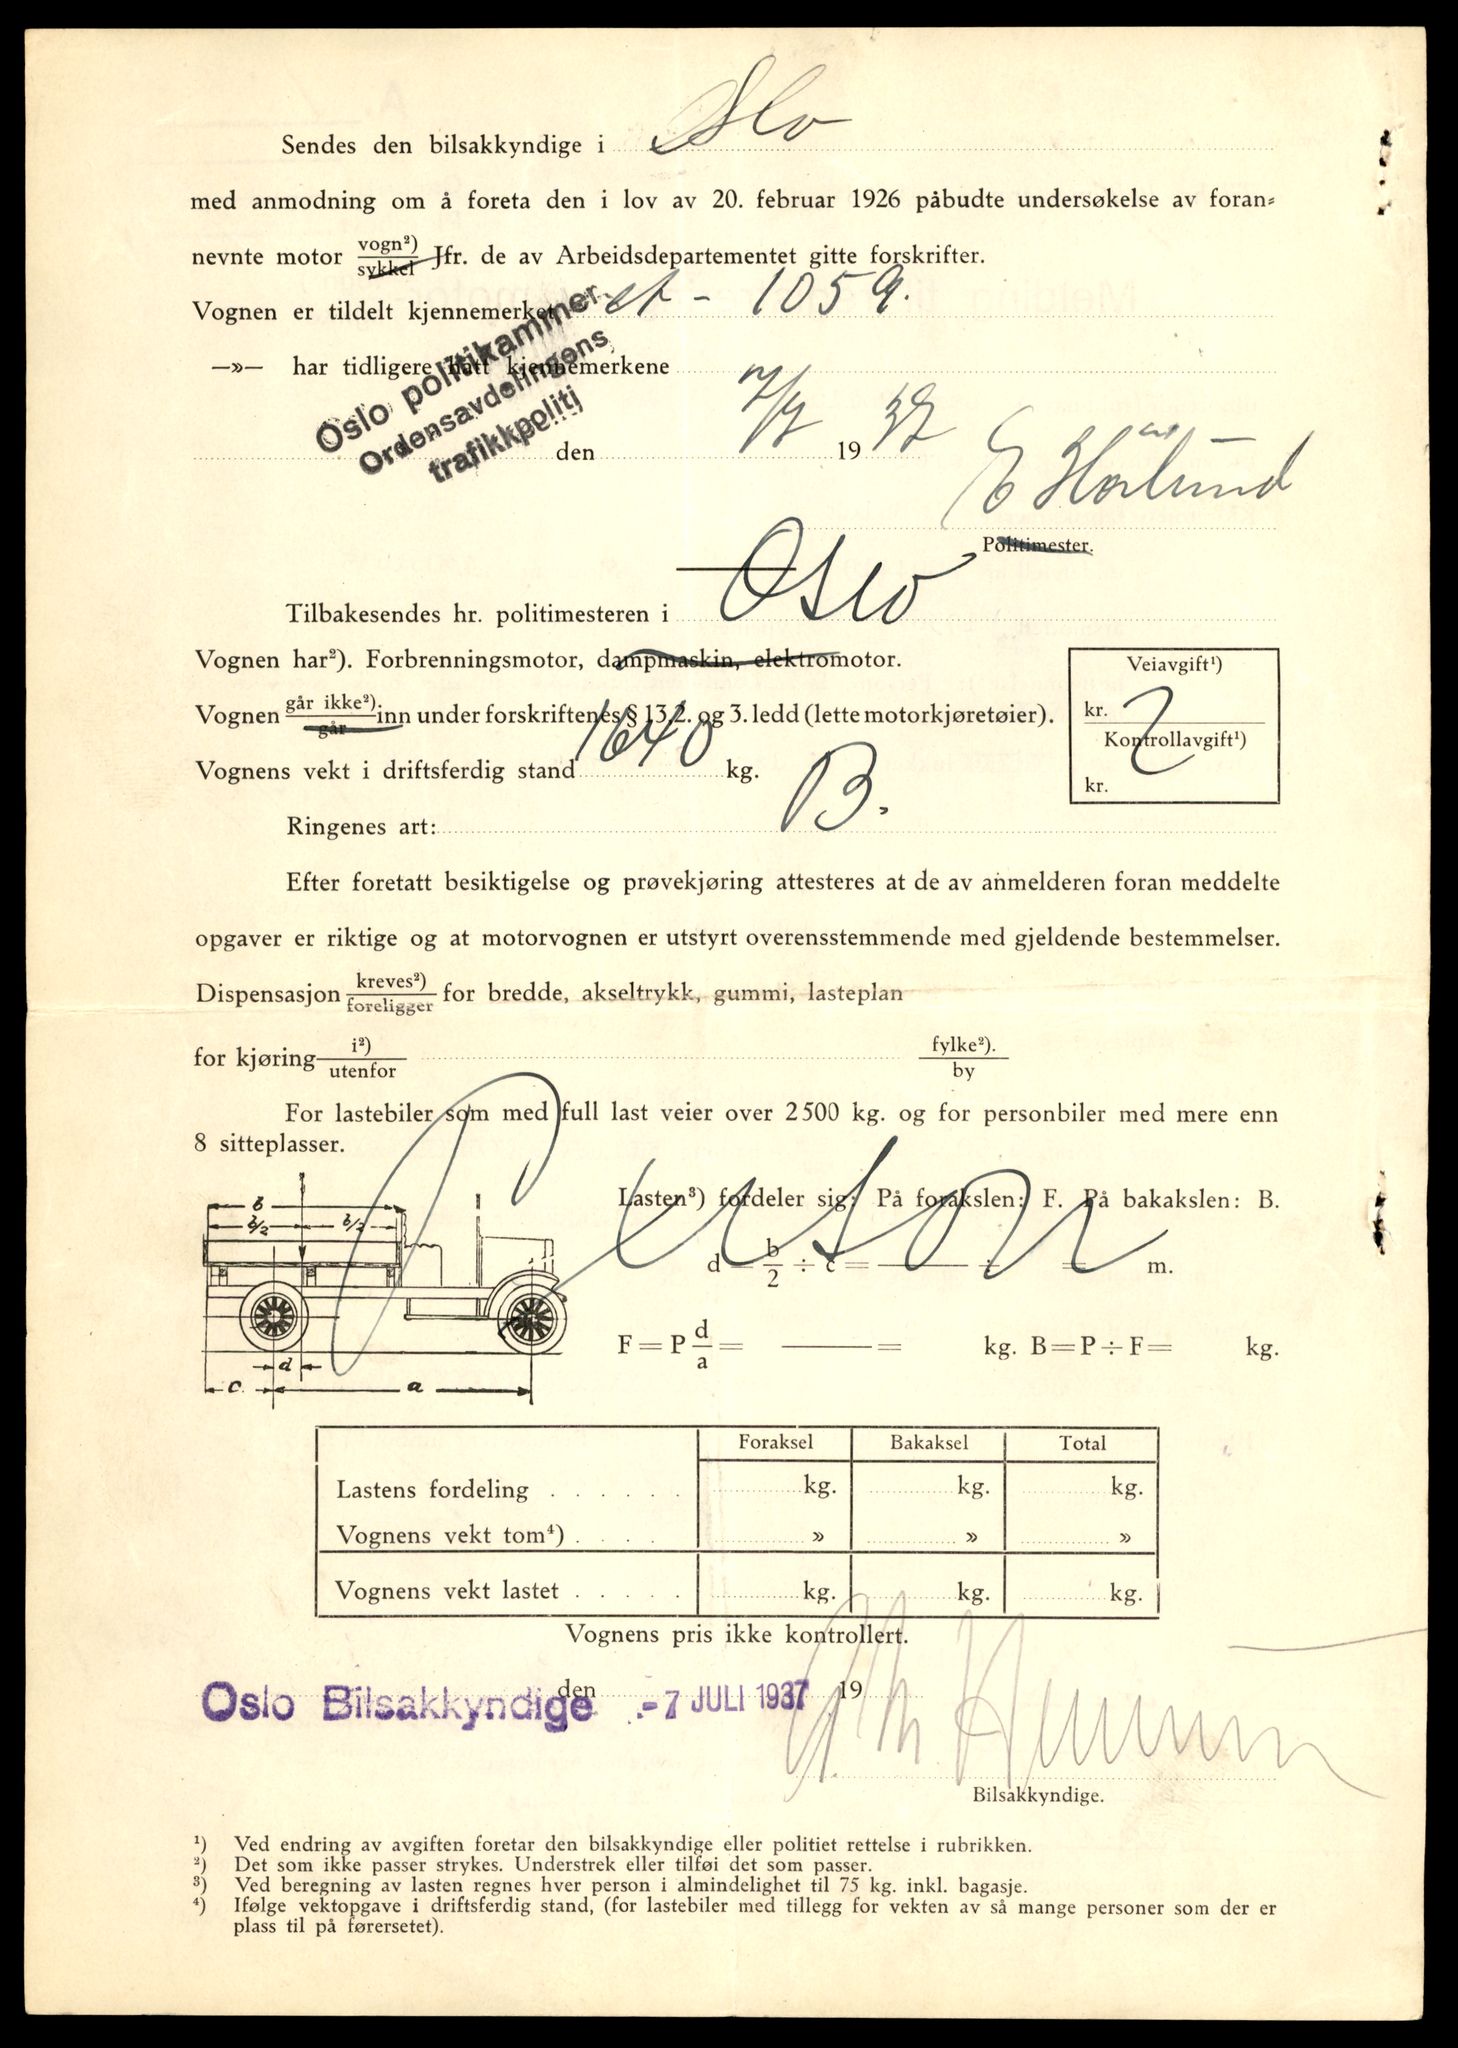 Sendes den bilsakkyndige i Oslo
med anmodning om å foreta den i lov av 20. februar 1926 påbudte undersøkelse av foran=
nevnte motor vogn²) / sykkel Jfr. de av Arbeidsdepartementet gitte forskrifter.
Vognen er tildelt kjennemerket A - 1059.
—»— har tidligere hatt kjennemerkene
Oslo politikammer
Ordensavdelingens
trafikkpoliti
den 7/7 19 37
E Hørlund
Politimester.
Tilbakesendes hr. politimesteren i Oslo
Vognen har²). Forbrenningsmotor, dampmaskin, elektromotor.
Vognen går ikke²) / går inn under forskriftenes § 13,2. og 3. ledd (lette motorkjøretøier).
Vognens vekt i driftsferdig stand 1640 kg.
Veiavgift¹)
kr. 2
Kontrollavgift¹)
kr.
Ringenes art: B.
Efter foretatt besiktigelse og prøvekjøring attesteres at de av anmelderen foran meddelte
opgaver er riktige og at motorvognen er utstyrt overensstemmende med gjeldende bestemmelser.
Dispensasjon kreves²) / foreligger for bredde, akseltrykk, gummi, lasteplan
for kjøring i²) / utenfor fylke²). / by
For lastebiler som med full last veier over 2500 kg. og for personbiler med mere enn
8 sitteplasser.
Person
Lasten³) fordeler sig: På forakslen: F. På bakakslen: B.
d = b/2 ÷ c = — = m.
F = P d/a = — = kg. B = P ÷ F = kg.
b
b/2 b/2
d
c a
Foraksel Bakaksel Total
Lastens fordeling . . . . . . kg. kg. kg.
Vognens vekt tom⁴) . . . . » » »
Vognens vekt lastet . . . . . kg. kg. kg.
Vognens pris ikke kontrollert.
Oslo Bilsakkyndige den -7 JULI 1937 19
Bilsakkyndige.
¹) Ved endring av avgiften foretar den bilsakkyndige eller politiet rettelse i rubrikken.
²) Det som ikke passer strykes. Understrek eller tilføi det som passer.
³) Ved beregning av lasten regnes hver person i almindelighet til 75 kg. inkl. bagasje.
⁴) Ifølge vektopgave i driftsferdig stand, (for lastebiler med tillegg for vekten av så mange personer som der er
plass til på førersetet).